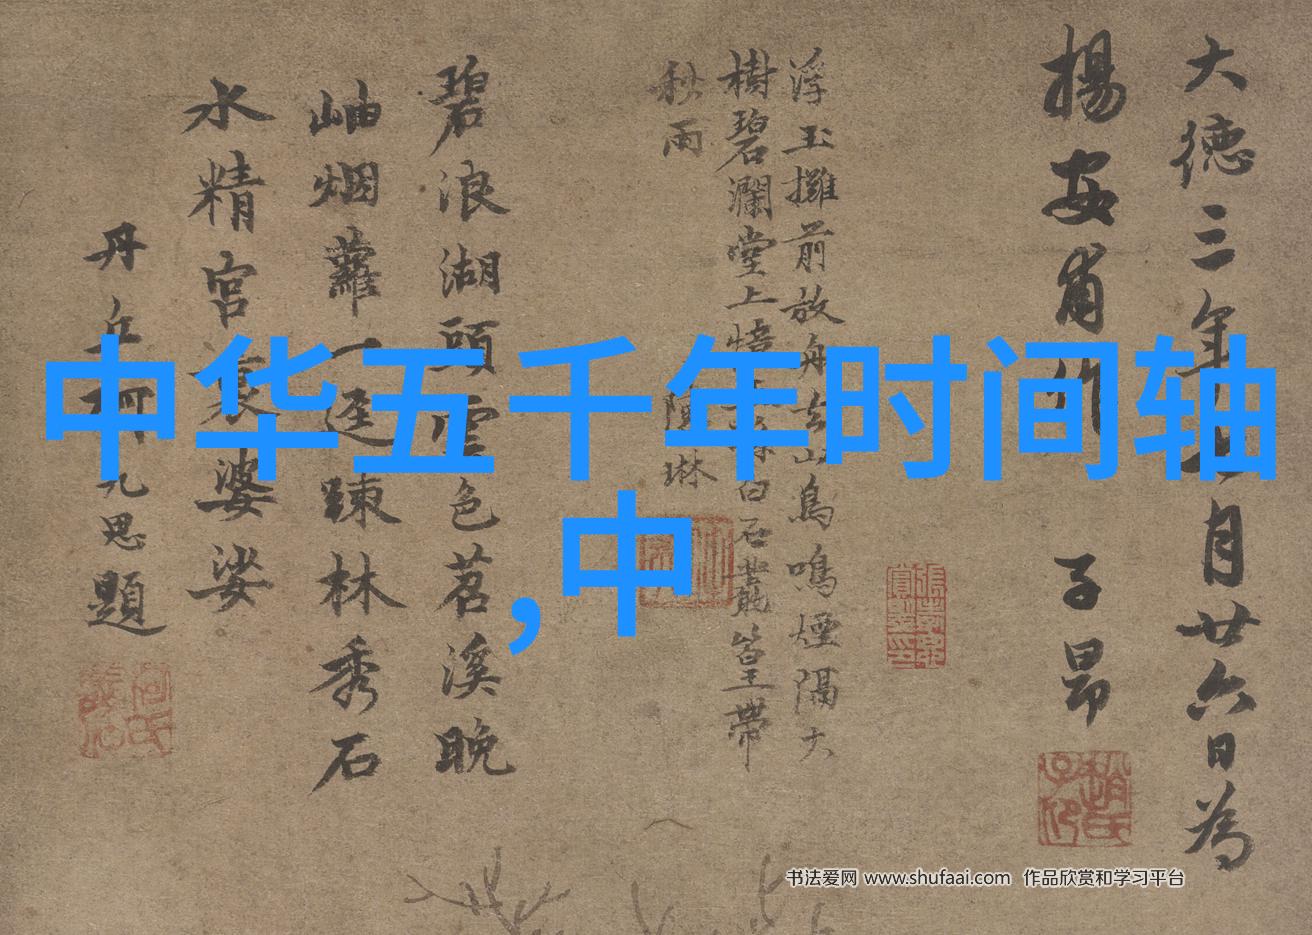 大德三年月廿六日為
揚安甫作 子昂
浮玉攤前放舟去山鳥鳴煙隔大
樹碧瀾堂上白石叢篁帶
秋雨 陳琳
碧浪湖頭雲色苕溪晚
岫烟蘿一逕踈林秀石
水精宮裏婆娑
丹丘柯九思題
中华五千年时间轴
,中
书法爱网 www.shufaai.com 作品欣赏和学习平台